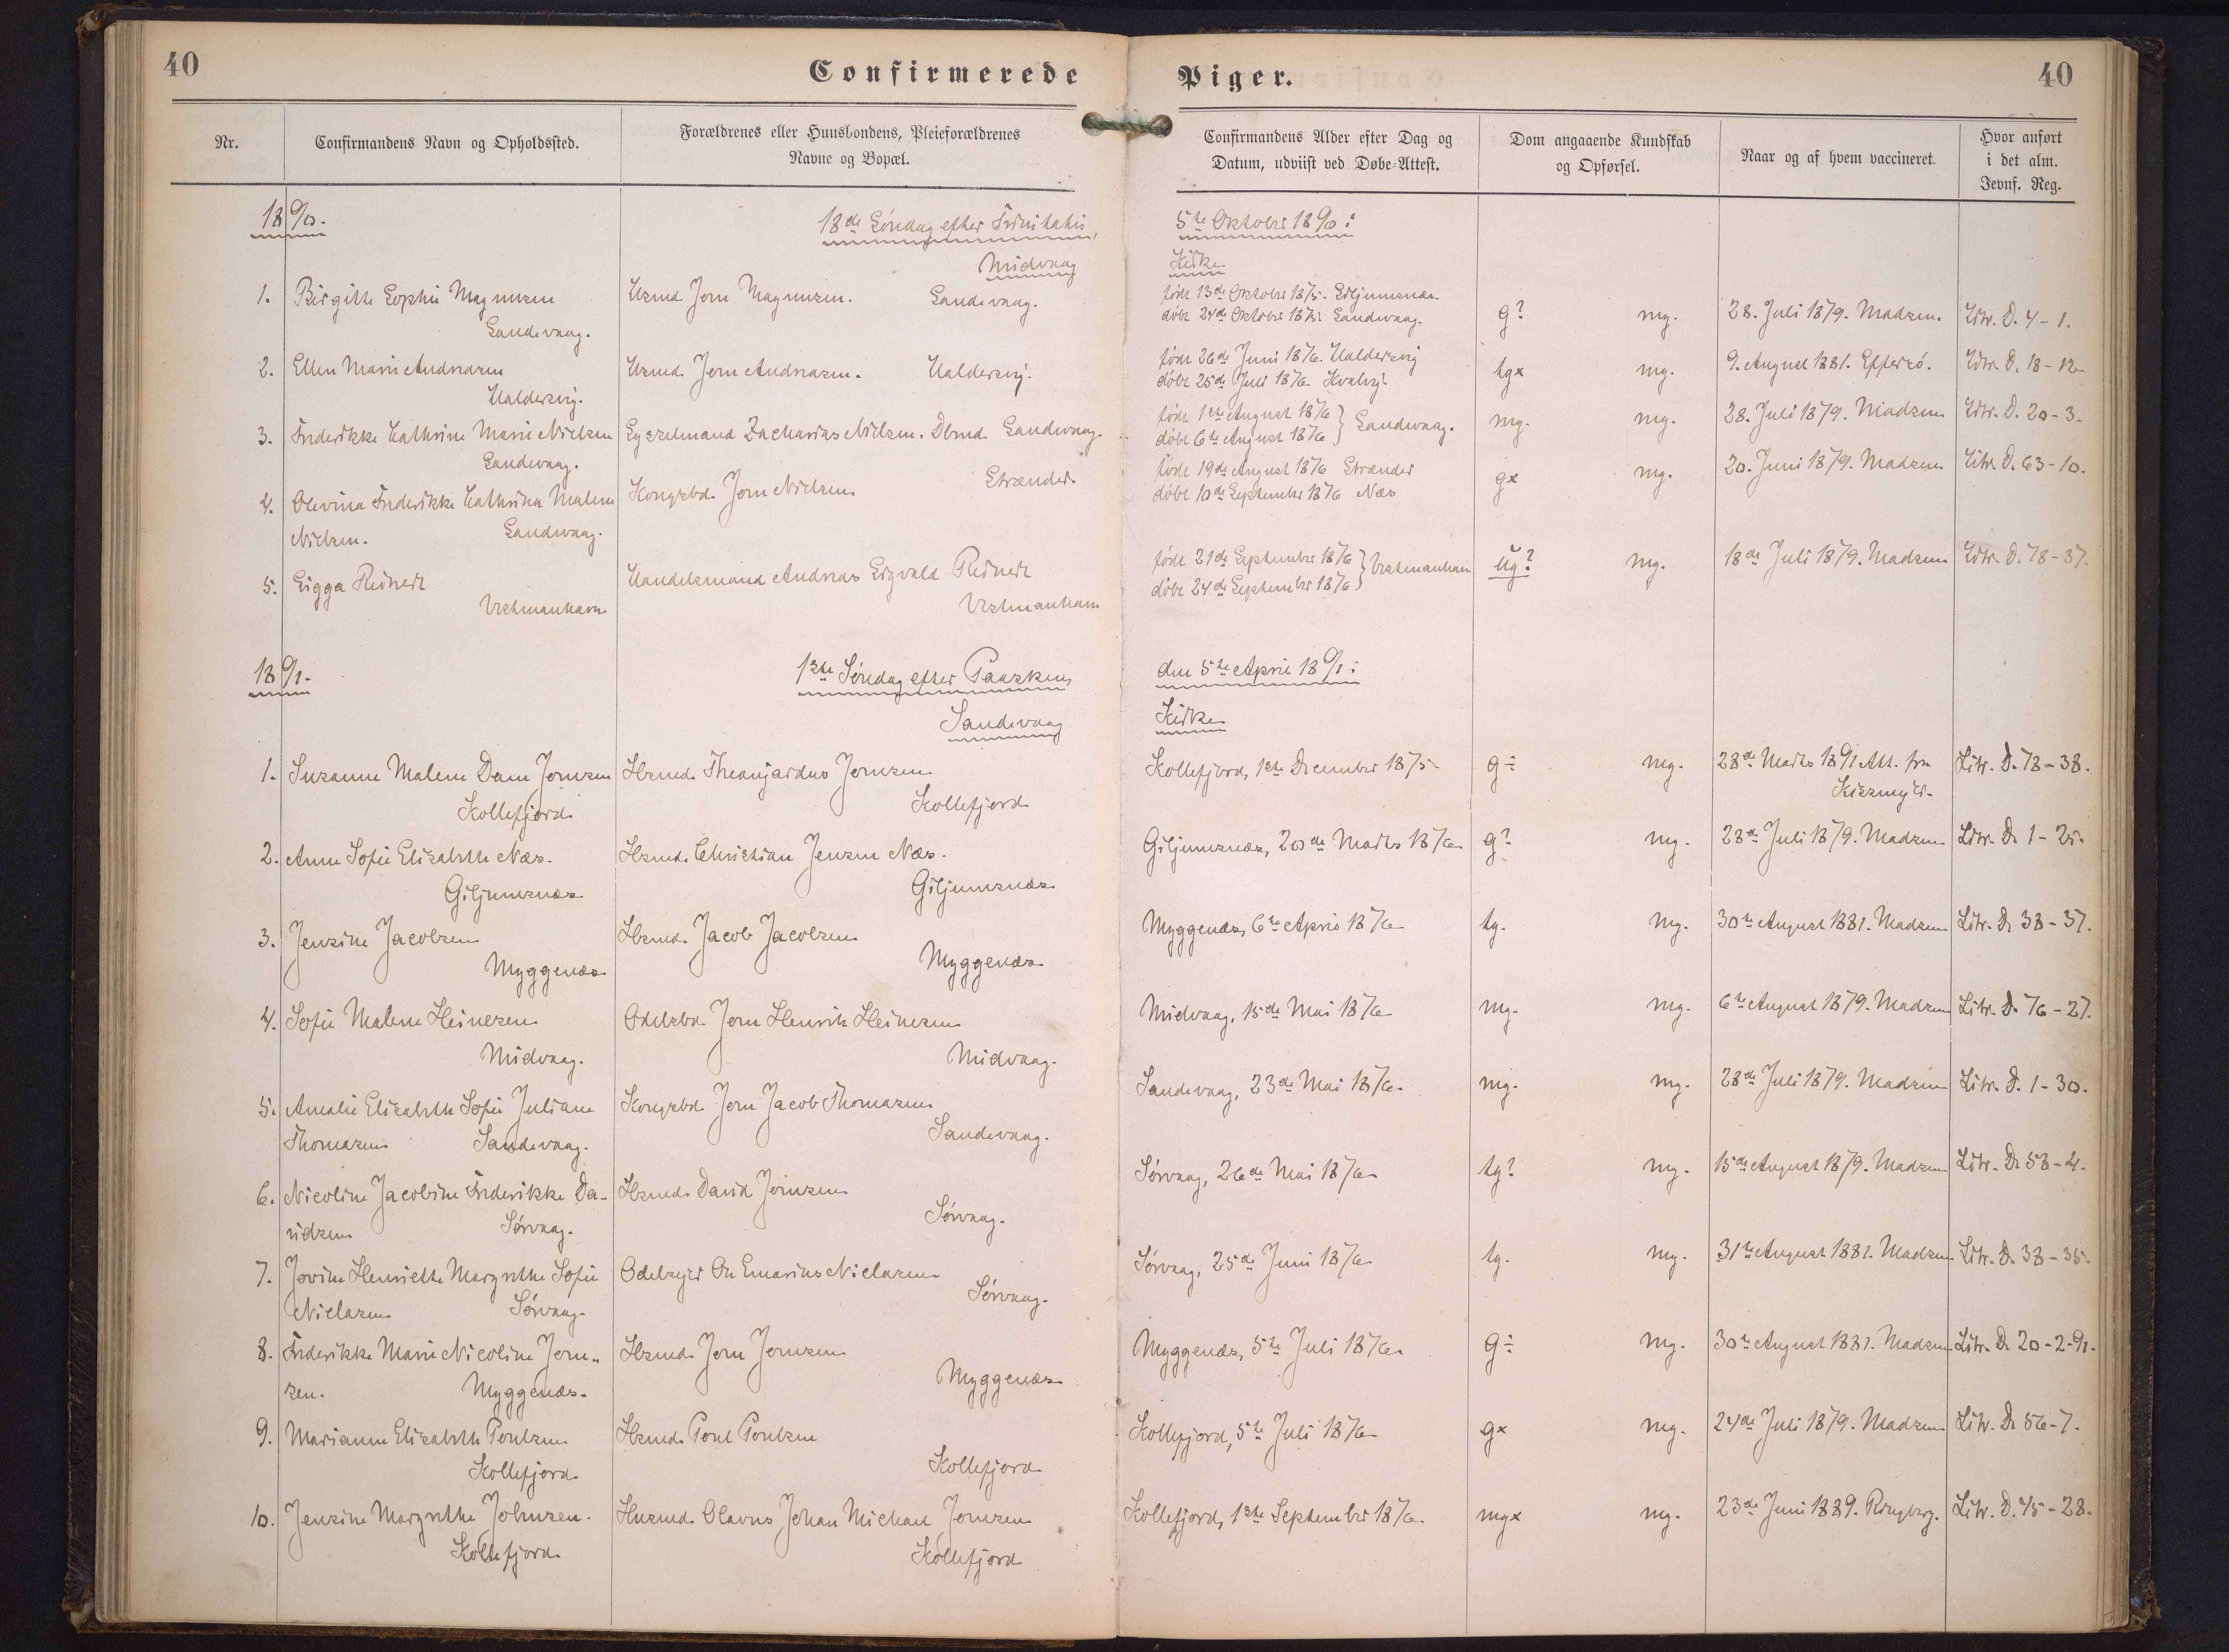 40
Confirmerede
Piger.
40
Nr.
Confirmandens Navn og Opholdssted.
Forældrenes eller Huusbondens, Pleieforældrenes
Navne og Bopæl.
Confirmandens Alder efter Dag og
Datum, udviist ved Døbe-Attest.
Dom angaaende Kundskab
og Opførsel.
Naar og af hvem vaccineret.
Hvor anført
i det alm.
Jevnf. Reg.
1890.
18de Søndag efter Trinitatis,
5te Oktober 1890:
Midvaag
Kirke
1. Birgitte Sophie Magnusen
Sandevaag.
Husmd. Joen Magnusen. Sandevaag.
født 13de Oktober 1875.
døbt 24de Oktober 1875 Sandevaag.
g? mg.
28. Juli 1879. Madsen.
Litr. D. 4-1.
2. Ellen Marie Andreasen
Haldersvig.
Husmd. Joen Andreasen. Haldersvig.
født 26de Juni 1876. Haldersvig
døbt 25de Juli 1876. Hvalvig.
tgx mg.
9. August 1881. Effersö.
Litr. D. 18-12
3. Frederikke Cathrine Marie Nielsen
Sandevaag.
Sysselmand Zacharias Nielsen. Dbmd. Sandevaag.
født 1ste August 1876
døbt 6te August 1876 } Sandevaag.
mg. mg.
28. Juli 1879. Madsen
Litr. D. 20-3.
4. Olevina Frederikke Cathrina Malene
Nielsen. Sandevaag.
Kongsbd. Joen Nielsen Strænder
født 19de August 1876 Strænder
døbt 10de September 1876 Næs
gx mg.
20. Juni 1879. Madsen
Litr. D. 63-10.
5. Sigga Reinert
Vestmanhavn
Handelsmand Andreas Sigvald Reinert
Vestmanhavn
født 21de September 1876
døbt 24de September 1876 } Vestmanhavn
ug? mg.
18de Juli 1879. Madsen
Litr. D. 78-37.
1891.
1ste Søndag efter Paasken,
den 5te April 1891:
Sandevaag
Kirke
1. Susanne Malene Dam Joensen
Kollefjord.
Husmd. Theangardus Joensen
Kollefjord
Kollefjord, 1ste December 1875
g÷ mg.
28de Marts 1891 Att. fra
Litr. D. 78-38.
2. Anne Sofie Elisabeth Næs.
Giljumsnæs
Husmd. Christian Jensen Næs.
Giljumsnæs
Giljumsnæs, 20de Marts 1876
g? mg.
28de Juli 1879. Madsen
Litr. D. 1-25.
3. Jensine Jacobsen
Myggenæs
Husmd. Jacob Jacobsen
Myggenæs
Myggenæs, 6te April 1876
tg. mg.
30te August 1881. Madsen
Litr. D. 38-37.
4. Sofie Malene Heinesen
Midvaag.
Odelsbd. Joen Henrik Heinesen
Midvaag.
Midvaag, 15de Mai 1876
mg. mg.
6te August 1879. Madsen
Litr. D. 76-27.
5. Amalie Elisabeth Sofie Juliane
Thomasen Sandevaag.
Kongsbd. Joen Jacob Thomasen
Sandevaag.
Sandevaag, 23de Mai 1876.
mg. mg.
28de Juli 1879. Madsen
Litr. D. 1-30.
6. Nicoline Jacobine Frederikke Da-
vidsen Sørvaag.
Husmd. David Joensen
Sørvaag.
Sørvaag, 26de Mai 1876
tg? mg.
15de August 1879. Madsen
Litr. D. 58-4.
7. Jovine Henriette Margrethe Sofie
Niclasen Sørvaag.
Odelsejer Ole Emarius Niclasen
Sørvaag.
Sørvaag, 25de Juni 1876
tg. mg.
31te August 1881. Madsen
Litr. D. 38-35.
8. Frederikke Marie Nicoline Joen-
sen. Myggenæs.
Husmd. Joen Joensen
Myggenæs
Myggenæs, 5te Juli 1876
g÷ mg.
30te August 1881. Madsen
Litr. D. 20-2-91.
9. Marianne Elisabeth Poulsen
Kollefjord
Husmd. Poul Poulsen
Kollefjord
Kollefjord, 5te Juli 1876
gx mg.
24de Juli 1879. Madsen
Litr. D. 56-7.
10. Jensine Margrethe Johnsen.
Kollefjord
Husmd. Olavus Johan Michael Joensen
Kollefjord
Kollefjord, 1ste September 1876.
mgx mg.
23de Juni 1889. Ringberg.
Litr. D. 45-28.